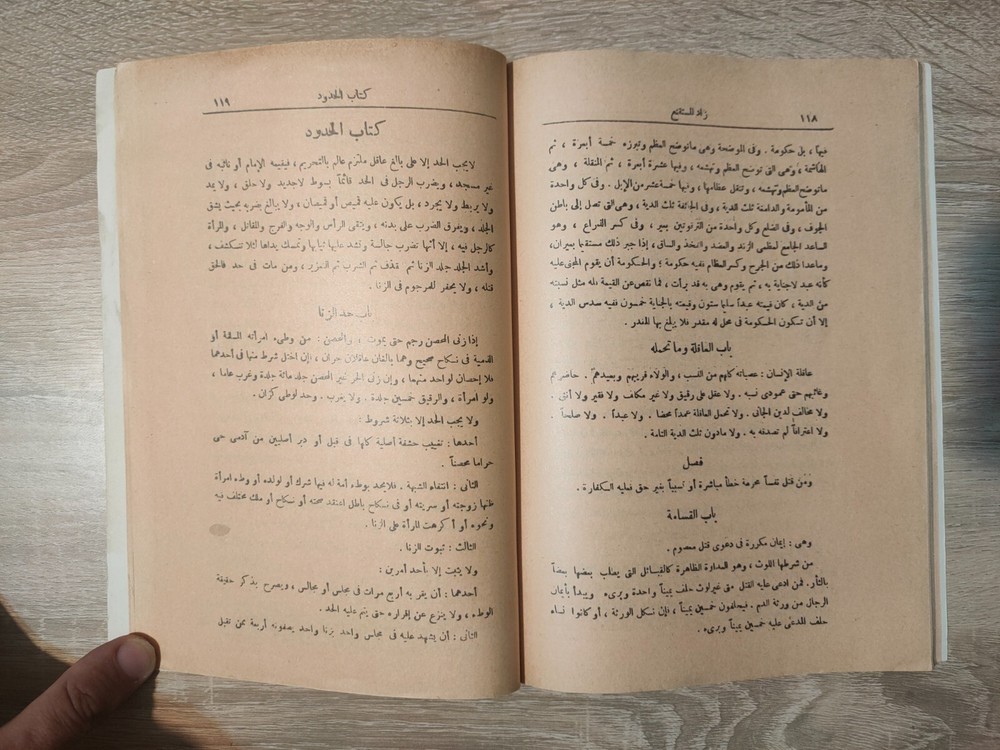 ١١٨
زاد المستقنع
فيها ، بل حكومة . وفى الموضحة وهى ماتوضح العظم وتبرزه خمسة أبعرة ، ثم
الهاشمة ، وهى التى توضح العظم وتهشمه ، وفيها عشرة أبعرة ، ثم المنقلة ، وهى
ماتوضح العظم وتهشمه ، وتنقل عظامها ، وفيها خمسة عشر من الإبل . وفى كل واحدة
من المأمومة والدامغة ثلث الدية ، وفى الجائفة ثلث الدية ، وهى التى تصل إلى باطن
الجوف ، وفى الضلع وكل واحدة من الترقوتين بعير ، وفى كسر الذراع ، وهو
الساعد الجامع لعظمى الزند والعضد والفخذ والساق ، إذا جبر ذلك مستقيما بعيران،
وماعدا ذلك من الجرح وكسر العظام ففيه حكومة ؛ والحكومة أن يقوم المجنى عليه
كأنه عبد لاجناية به ، ثم يقوم وهى به قد برأت ، فما نقص عن القيمة فله مثل نسبته
من الدية ، كأن قيمته عبداً سليما ستون وقيمته بالجناية خمسون ففيه سدس الدية ،
إلا أن تكون الحكومة فى محل له مقدر فلا يبلغ بها المقدر .
باب العاقلة وما تحمله
عاقلة الإنسان : عصباته كلهم من النسب ، والولاء قريبهم وبعيدهم . حاضرهم
وغائبهم حتى عمودى نسبه . ولا عقل على رقيق ولا غير مكلف ولا فقير ولا أنثى .
ولا مخالف لدين الجانى . ولا تحمل العاقلة عمداً محضا . ولا عبداً . ولا صلحاً .
ولا اعترافاً لم تصدقه به . ولا مادون ثلث الدية التامة .
فصل
ومن قتل نفساً محرمة خطأ مباشرة أو تسبباً بغير حق فعليه الكفارة .
باب القسامة
وهى : إيمان مكررة فى دعوى قتل معصوم .
من شرطها اللوث ، وهو العداوة الظاهرة كالقبائل التى يطلب بعضها بعضاً
بالثأر. فمن ادعى عليه القتل من غير لوث حلف يميناً واحدة وبرىء ويبدأ بأيمان
الرجال من ورثة الدم . فيحلفون خمسين يميناً ، فإن نكل الورثة ، أو كانوا نساء
حلف المدعى عليه خمسين يميناً وبرىء .
كتاب الحدود
١١٩
كتاب الحدود
لايجب الحد إلا على بالغ عاقل ملتزم عالم بالتحريم ، فيقيمه الإمام أو نائبه فى
غير مسجد ، ويضرب الرجل فى الحد قائماً بسوط لاجديد ولا خلق ، ولا يمد
ولا يربط ولا يجرد ، بل يكون عليه قميص أو قميصان ، ولا يبالغ بضربه بحيث يشق
الجلد ، ويفرق الضرب على بدنه ، ويتقى الرأس والوجه والفرج والمقاتل ، والمرأة
كالرجل فيه ، إلا أنها تضرب جالسة وتشد عليها ثيابها وتمسك يداها لئلا تنكشف ،
وأشد الجلد جلد الزنا ثم قذف ثم الشرب ثم التعزير ، ومن مات فى حد فالحق
قتله ، ولا يحفر للمرجوم فى الزنا .
باب حد الزنا
إذا زنى المحصن رجم حتى يموت ، والمحصن : من وطىء امرأته المسلمة أو
الذمية فى نكاح صحيح وهما بالغان عاقلان حران ، فإن اختل شرط منها فى أحدهما
فلا إحصان لواحد منهما ، وإن زنى الحر غير المحصن جلد مائة جلدة وغرب عاما ،
ولو امرأة ، والرقيق خمسين جلدة . ولا يغرب . وحد لوطى كزان .
ولا يجب الحد إلا بثلاثة شروط :
أحدها : تغييب حشفة أصلية كلها فى قبل أو دبر أصليين من آدمى حى
حراما محصناً .
الثانى : انتفاء الشبهة . فلايحد بوطء أمة له فيها شرك أو لولده أو وطء امرأة
ظنها زوجته أو سريته أو فى نكاح باطل اعتقد صحته أو نكاح أو ملك مختلف فيه
ونحوه أو أكرهت المرأة على الزنا .
الثالث : ثبوت الزنا .
ولا يثبت إلا بأحد أمرين :
أحدهما : أن يقر به أربع مرات فى مجلس أو مجالس ، ويصرح بذكر حقيقة
الوطء ، ولا ينزع عن إقراره حتى يتم عليه الحد .
الثانى : أن يشهد عليه فى مجلس واحد بزنا واحد يصفونه أربعة ممن تقبل